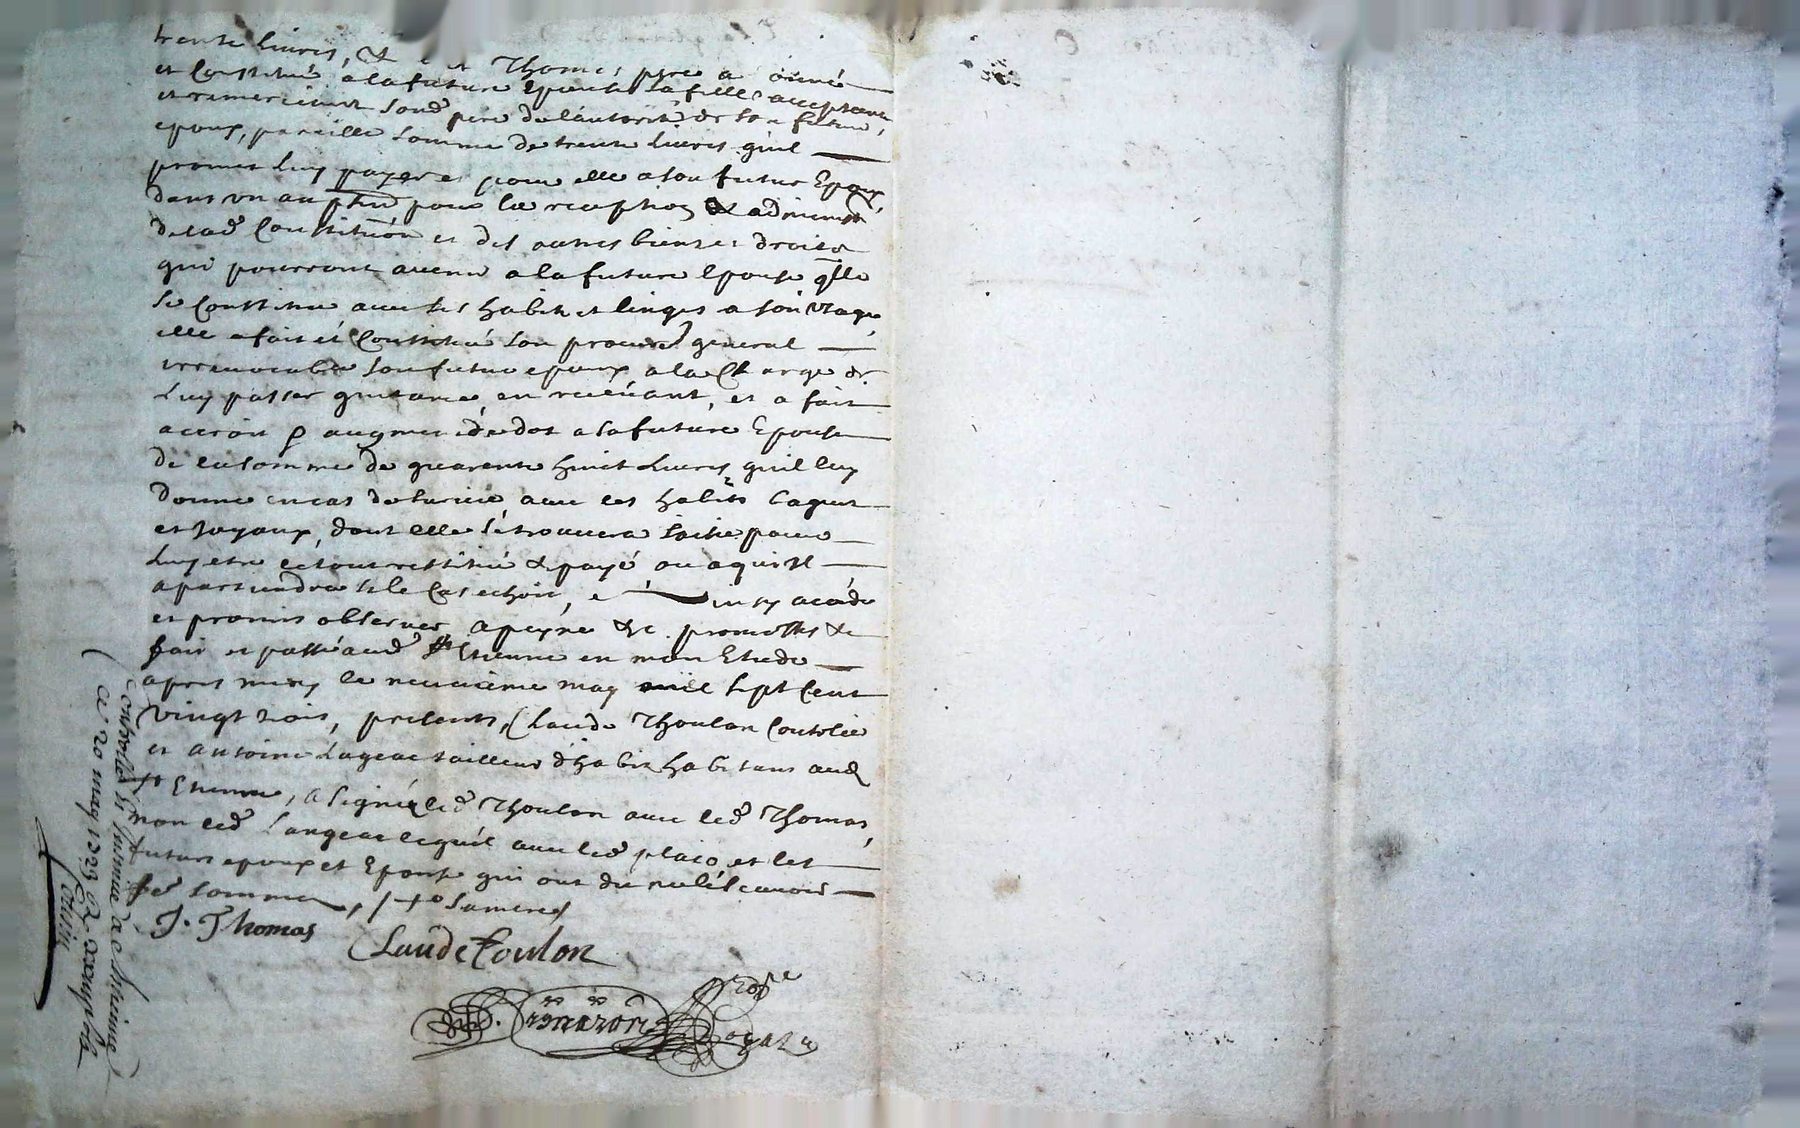 trente livres, & Thomas pere a donné
et Constitué a la future Epouse sa fille acceptante
et remerciant sond pere de l'autorité de son futur
epoux, pareille somme de trente livres qu'il
promet luy payer et pour elle a son futur Epoux,
dans un an pour la reception & administ
de lad Constitution et des autres biens et droits
qui pourront avenir a la future Epouse qlle
se Constitue avec ses habits et linges a son usage
elle a fait et Constitué son procur general
irrevocable son futur epoux a la Charge de
luy passer quitance, en recevant, et a fait
accroit p augment de dot a la future Epouse
de la somme de quarente huit livres qu'il luy
donne en cas de survie, avec les habits bagues
et Joyaux, dont elle se trouvera saisie pour
luy etre le tout restitué & payé ou a qui Il
apartiendra si le Cas echoit, insy acordé
et promis observer a peyne &c. promettes &c
fait et passé aud St Etienne en mon Etude
apres midy le neuvieme may mil sept Cent
vingt trois, presents, Claude Thoulon Coutelier
et Antoine Lageac tailleur d'habit habitans aud
St Etienne, a signé led Thoulon avec led Thomas,
non led Langeac lequel avec led plaio et les
futurs epoux et Epouse qui ont dit ne le scavoir
de ce sommes,
J. Thomas
Claude Toulon
nore
Royal
Controllé St Etienne
ce 20 may 1723